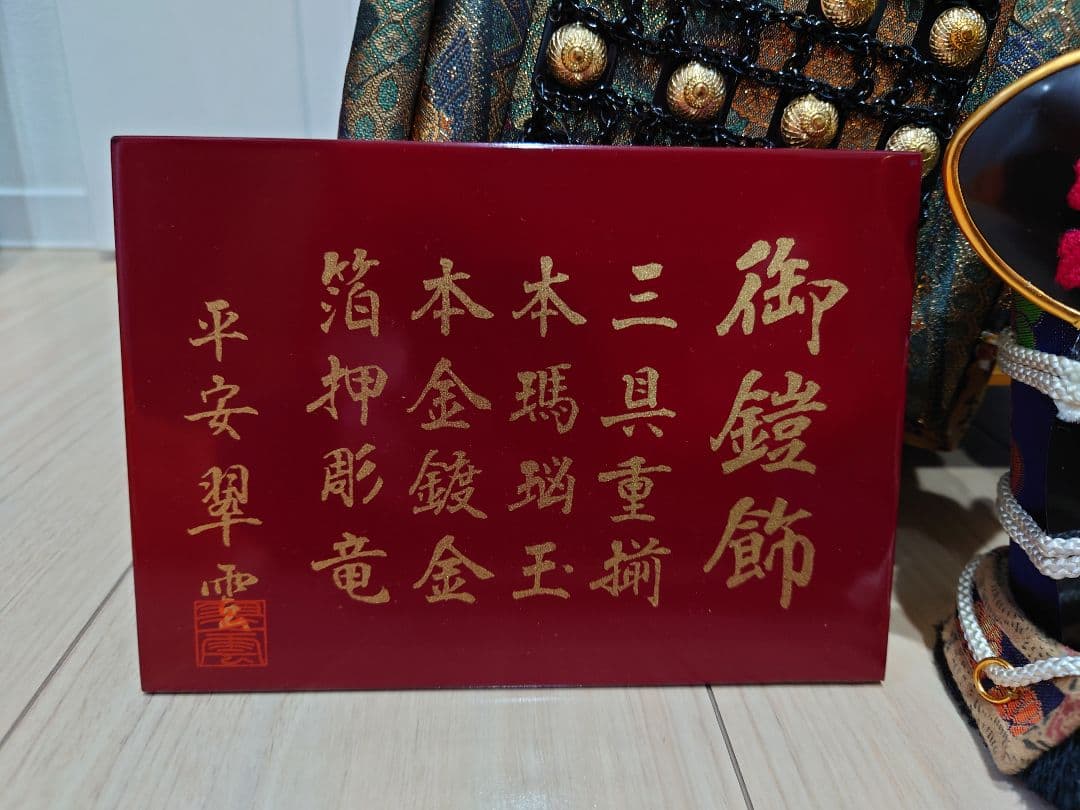 御鎧飾
三具重揃
本瑪瑙玉
本金鍍金
箔押彫竜
平安翠雲
翠雲